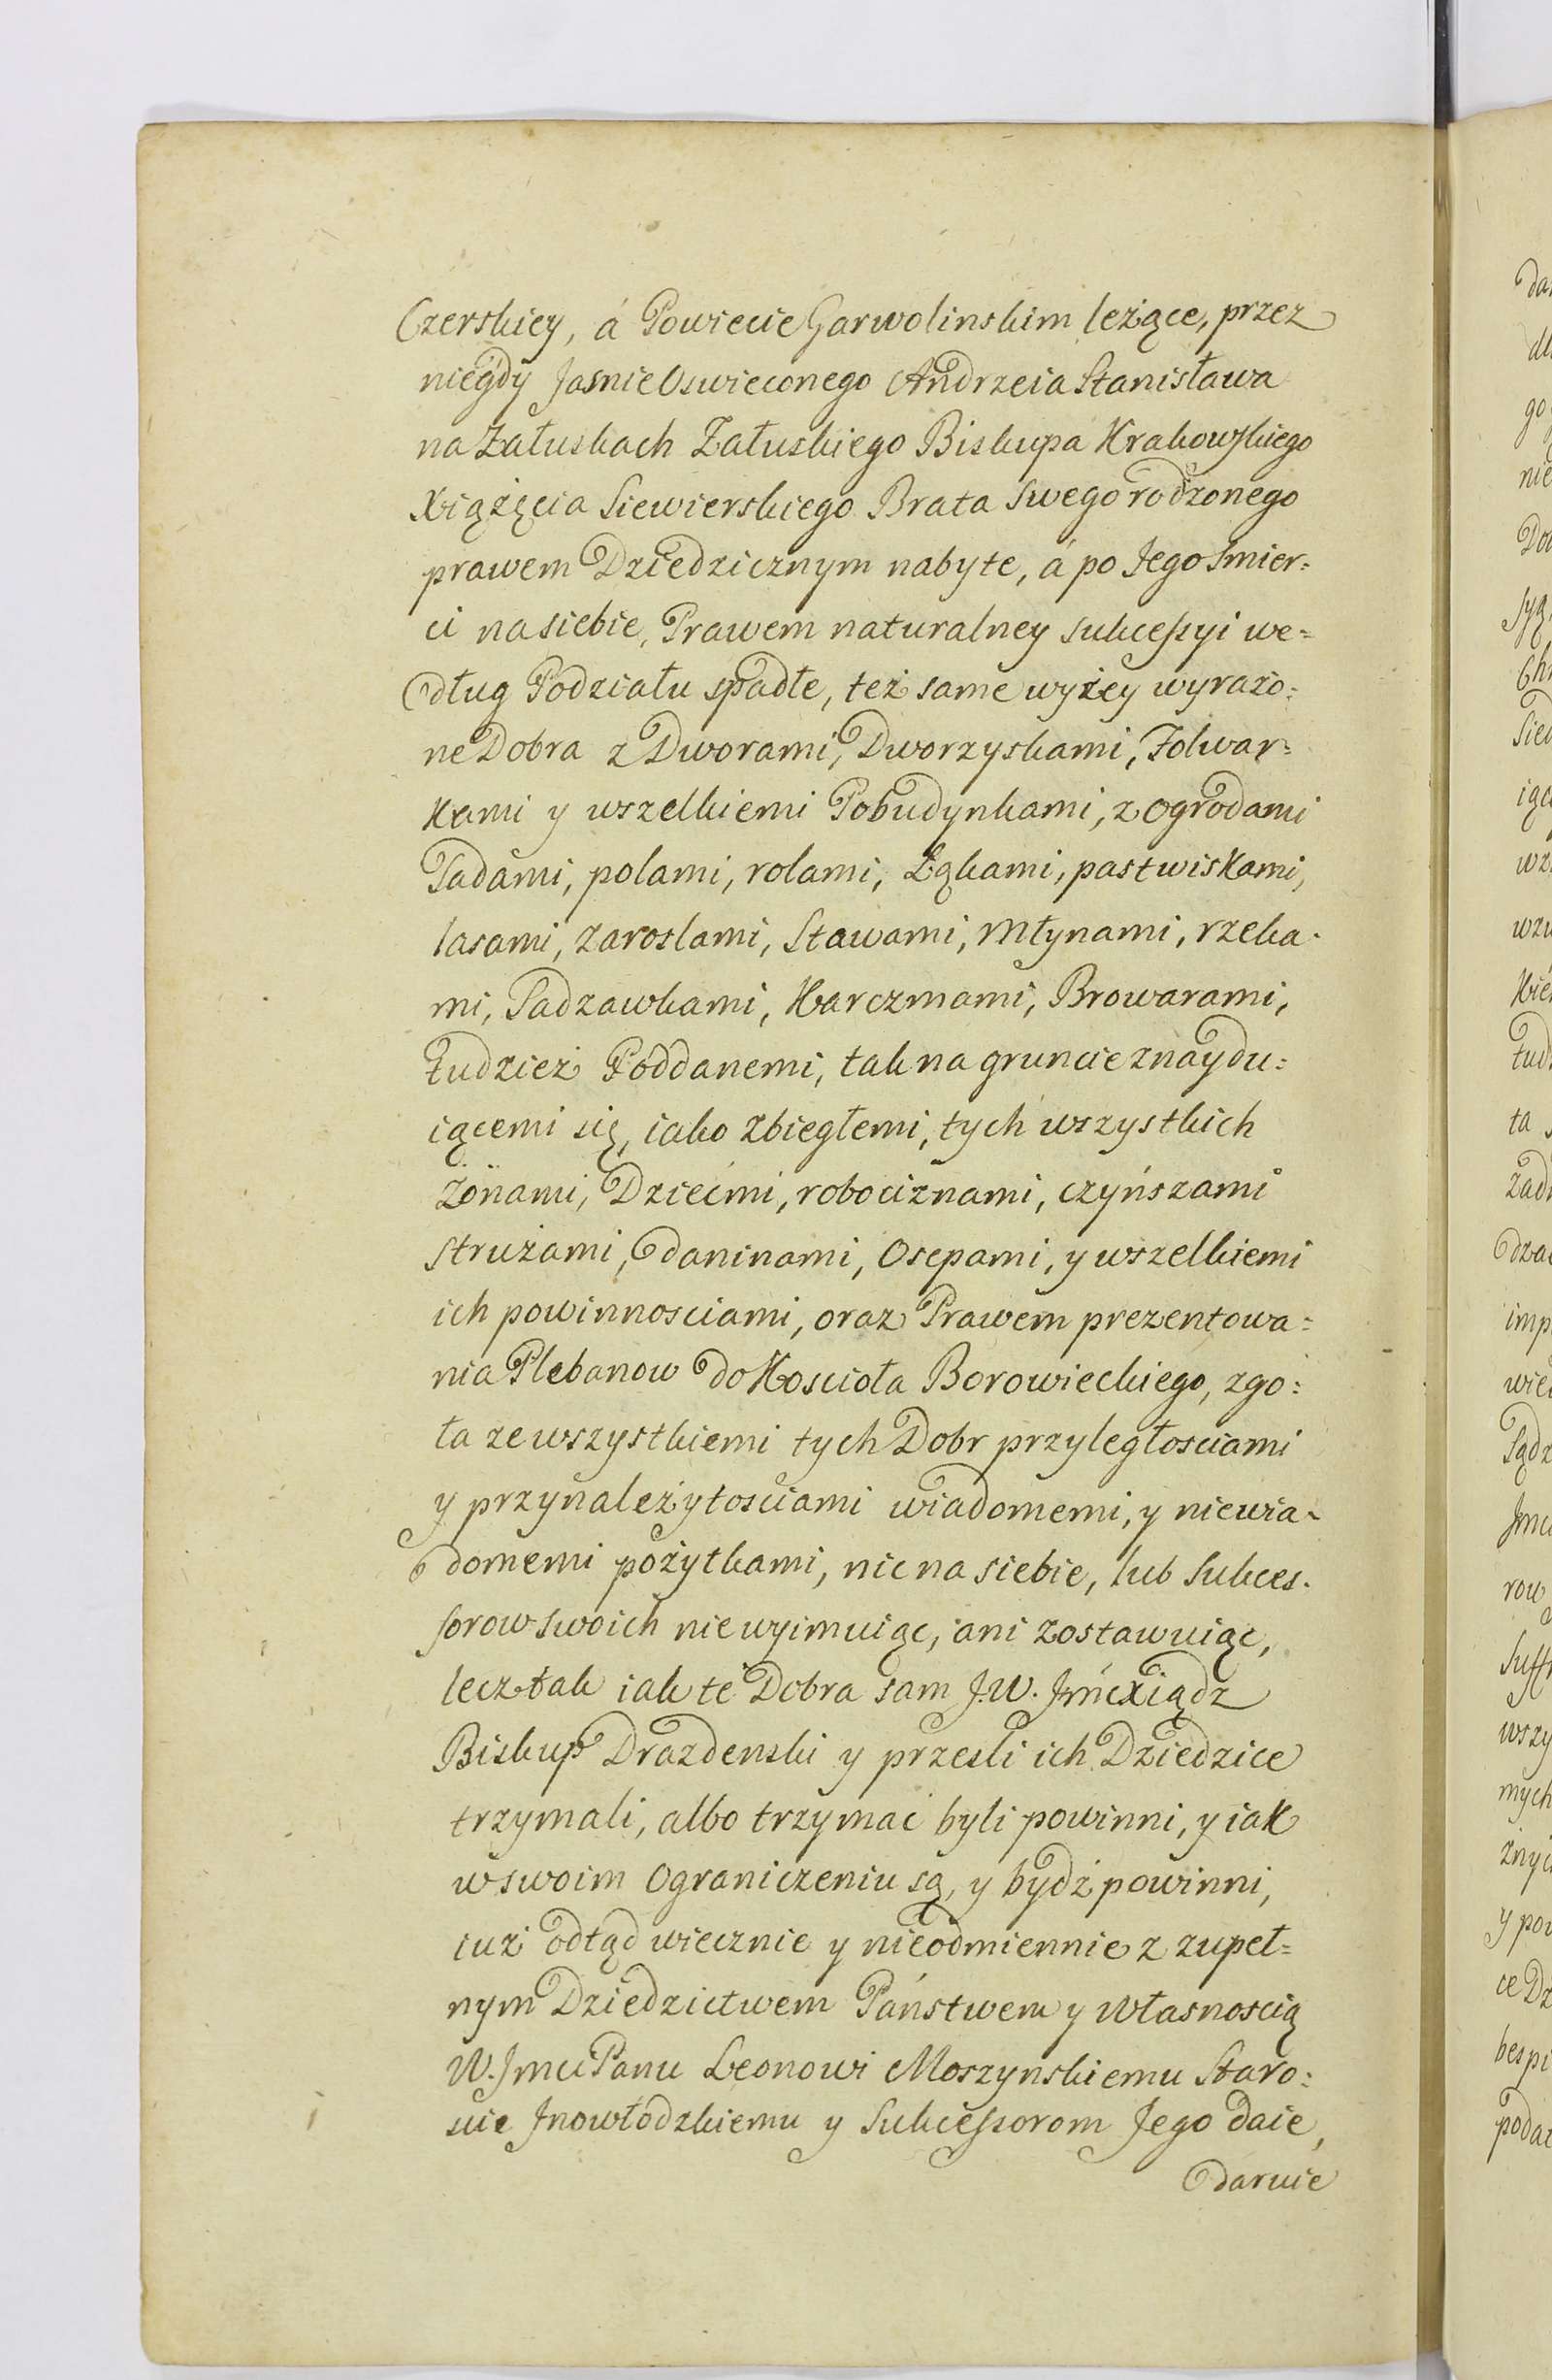 Czerskiey, á Powiecie Garwolinskim leżące, przez
niegdy JasnieOswieconego Andrzeia Stanisława
na Załuskach Załuskiego Biskupa Krakowskiego
Xiążęcia Siewierskiego Brata swego rodzonego
prawem Dziedzicznym nabyte, á po Jego smier=
ci na siebie, Prawem naturalney sukcessyi we=
dług Podziału spadłe, też same wyżey wyrażo=
ne Dobra z Dworami, Dworzyskami, Folwar=
kami y wszelkiemi Pobudynkami, z ogrodami
Sadami, polami, rolami, Łąkami, pastwiskami,
lasami, zaroslami, Stawami, Młynami, rzeka=
mi, Sadzawkami, Karczmami, Browarami,
Tudzież Poddanemi, tak na gruncie znaydu=
iącemi się, iako zbiegłemi, tych wszystkich
Żonami, Dziećmi, robociznami, czyńszami
strużami, daninami, Osepami, y wszelkiemi
ich powinnosciami, oraz Prawem prezentowa=
nia Plebanow do Kosciola Borowieckiego, zgo=
ła ze wszystkiemi tych Dobr przyległosciami
y przynależytosciami wiadomemi, y niewia=
domemi pożytkami, nic na siebie, lub Sukces=
sorow swoich nie wyimuiąc, ani zostawuiąc,
lecz tak iak te Dobra sam J.W. Jmć Xiądz
Biskup Drazdenski y przesli ich Dziedzice
trzymali, albo trzymać byli powinni, y iak
w swoim Ograniczeniu są, y bydź powinni,
iuż odtąd wiecznie y nieodmiennie z zupeł=
nym Dziedzictwem Państwem y własnoscią
W. Jmci Panu Leonowi Moszynskiemu Staro=
scie Jnowłodzkiemu y Sukcessorom Jego daie,
daruie